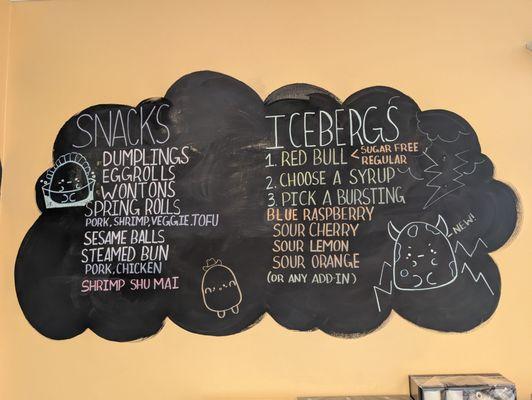 SNACKS
DUMPLINGS
EGGROLLS
WONTONS
SPRING ROLLS
PORK, SHRIMP, VEGGIE, TOFU
SESAME BALLS
STEAMED BUN
PORK, CHICKEN
SHRIMP SHU MAI
ICEBERGS
1. RED BULL < SUGAR FREE
REGULAR
2. CHOOSE A SYRUP
3. PICK A BURSTING
BLUE RASPBERRY
SOUR CHERRY
SOUR LEMON
SOUR ORANGE
(OR ANY ADD-IN)
NEW!